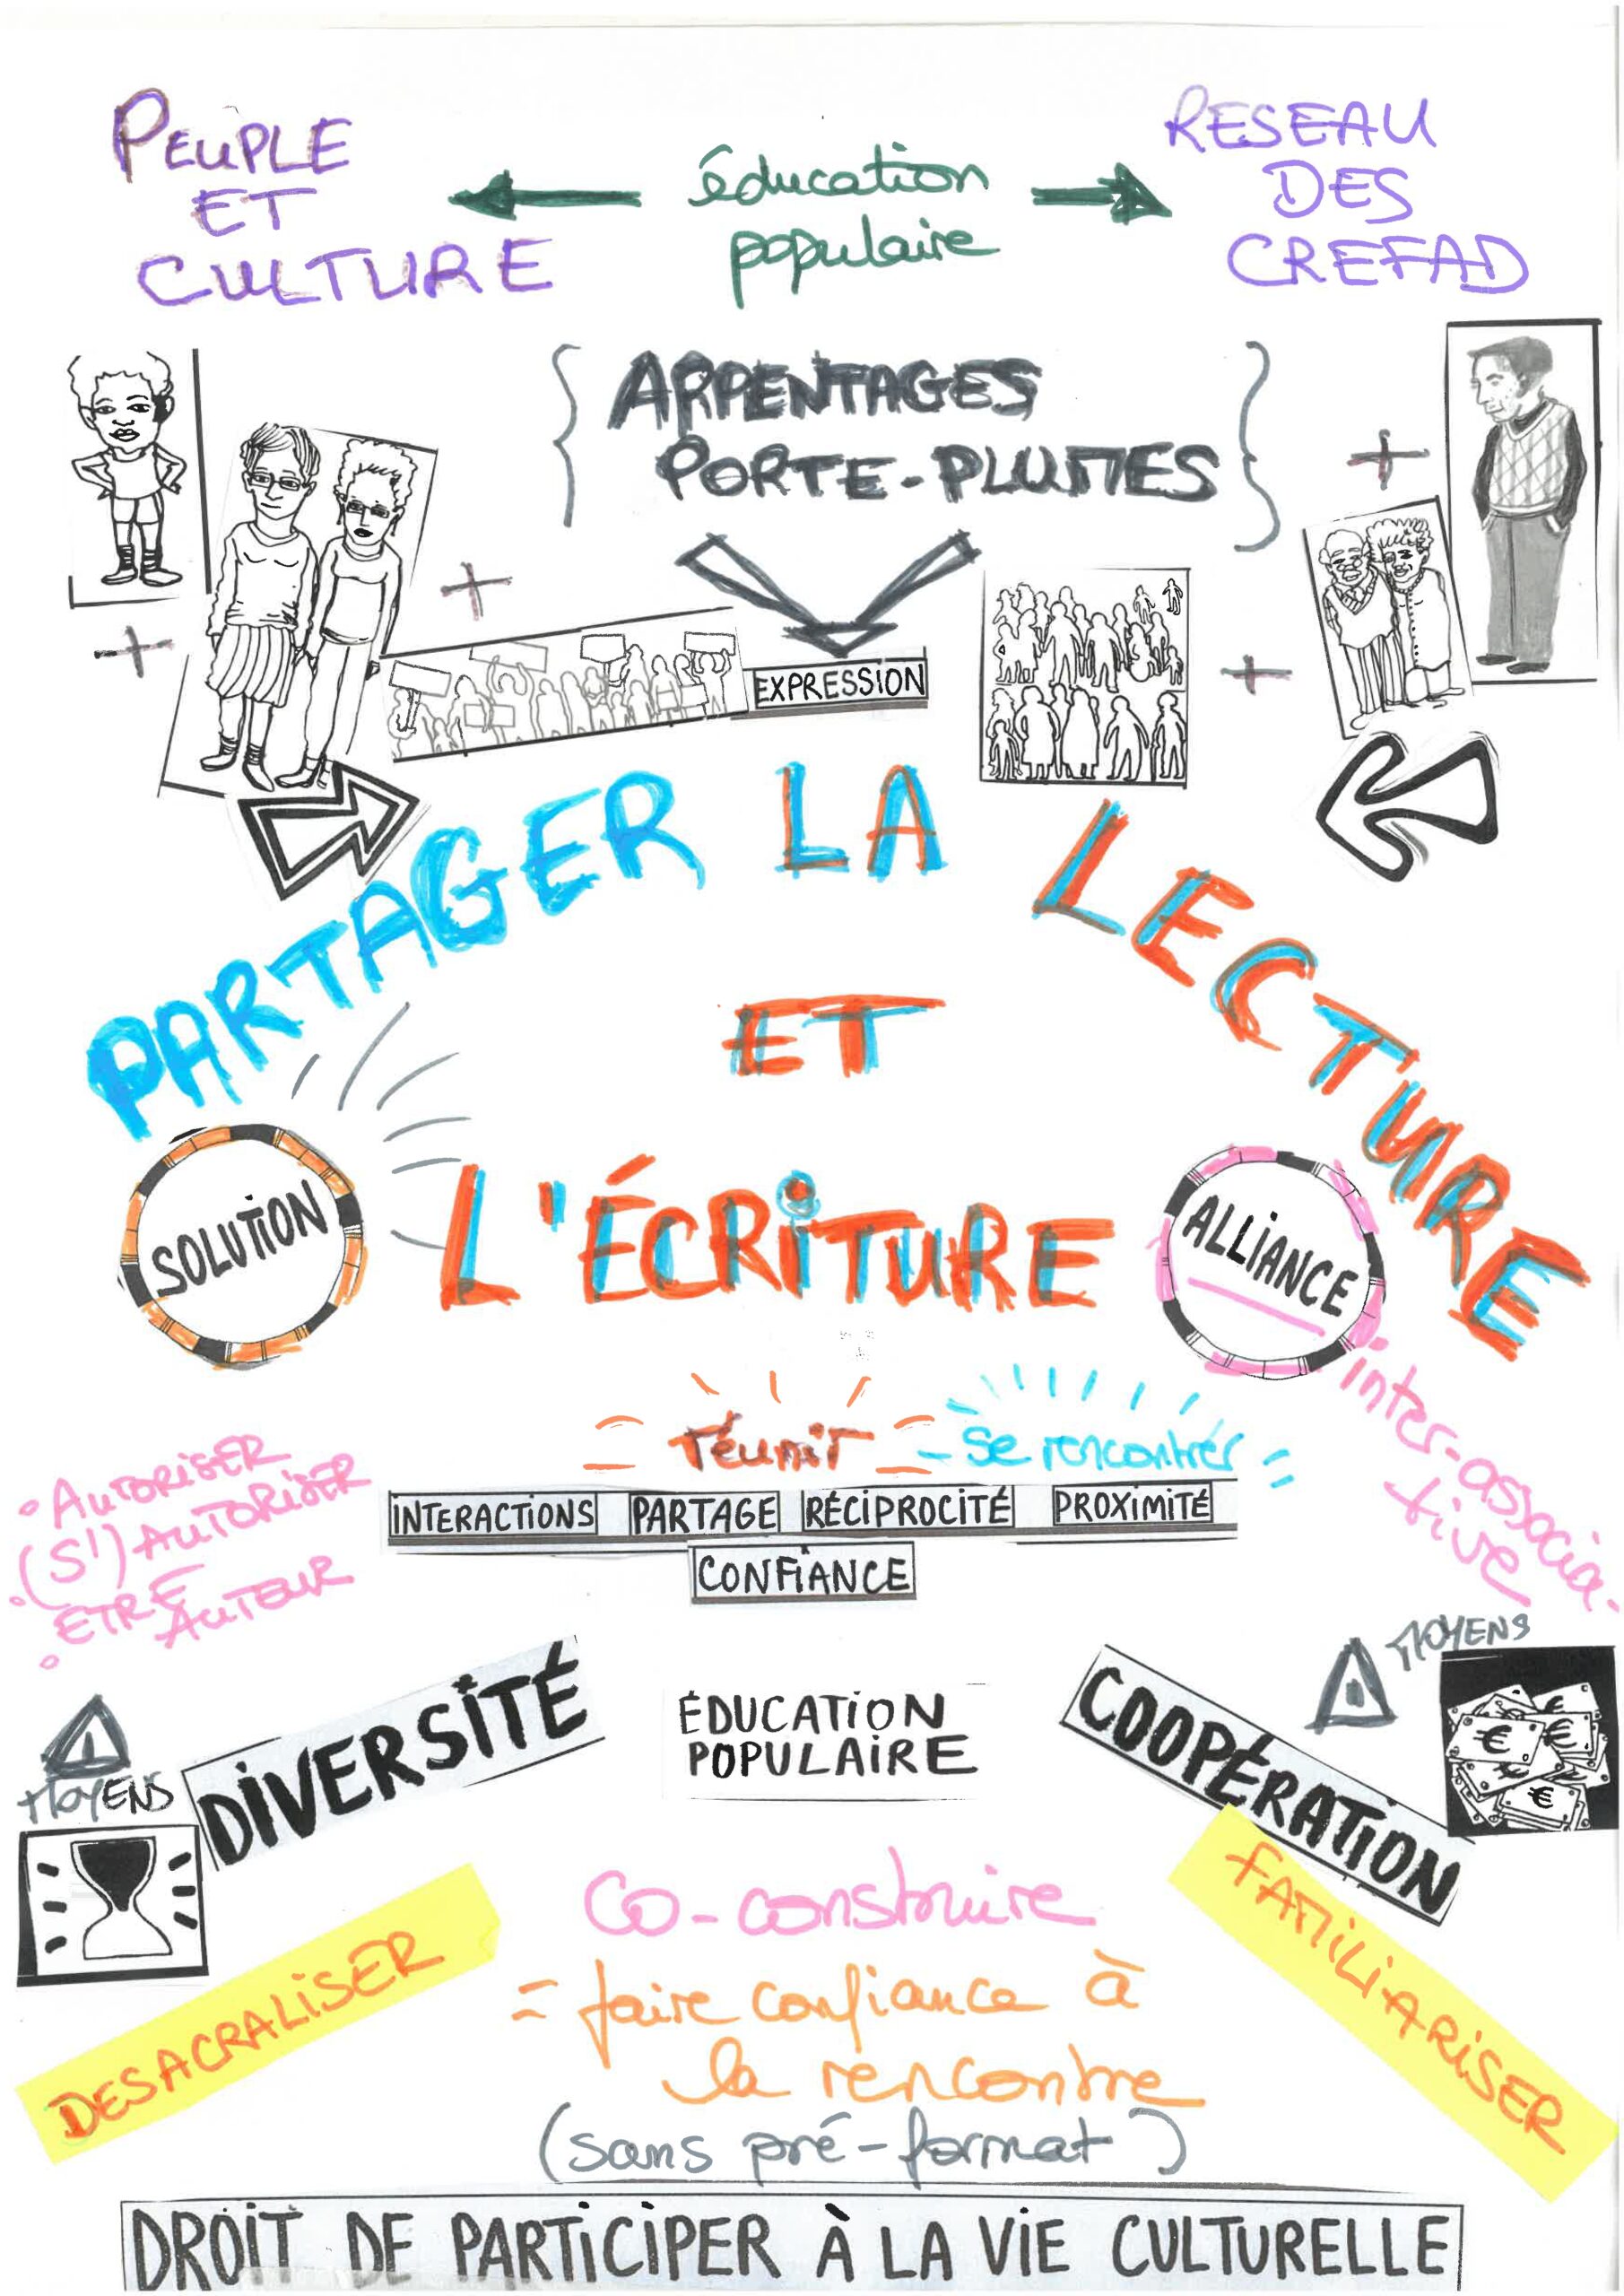 PEUPLE
ET
CULTURE
éducation
populaire
RESEAU
DES
CREFAD
ARPENTAGES
PORTE-PLUMES
EXPRESSION
PARTAGER LA LECTURE
ET
L'ÉCRITURE
SOLUTION
ALLIANCE
inter-associa-
tive
réunir - se rencontrer
INTERACTIONS PARTAGE RÉCIPROCITÉ PROXIMITÉ
CONFIANCE
• AUTORISER
(S') AUTORISER
• ETRE
AUTEUR
•
MOYENS
MOYENS
DIVERSITÉ
ÉDUCATION
POPULAIRE
COOPÉRATION
€ € € €
DESACRALISER
FAMILIARISER
Co-construire
= faire confiance à
la rencontre
(sans pré-format)
DROIT DE PARTICIPER À LA VIE CULTURELLE